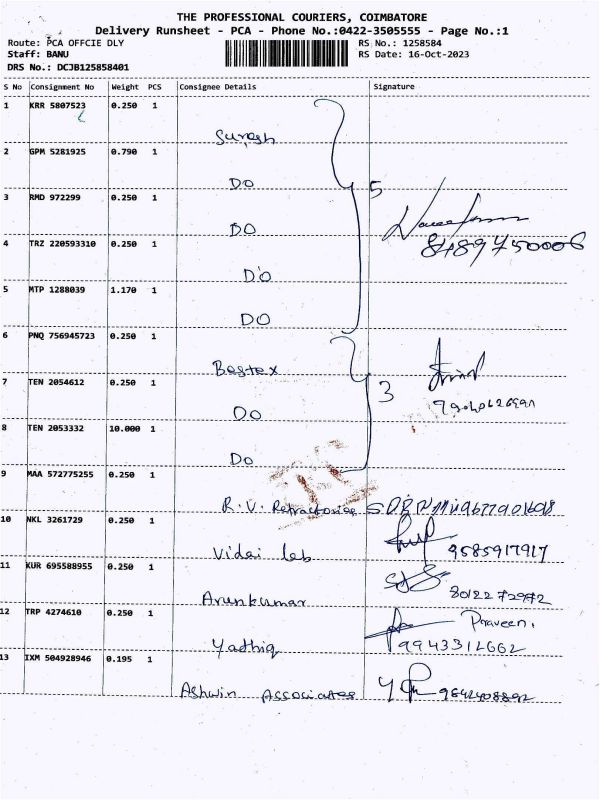 THE PROFESSIONAL COURIERS, COIMBATORE
Delivery Runsheet - PCA - Phone No.:0422-3505555 - Page No.:1
Route: PCA OFFCIE DLY RS No.: 1258584
Staff: BANU RS Date: 16-Oct-2023
DRS No.: DCJB125858401
S No Consignment No Weight PCS Consignee Details Signature
1 KRR 5807523 0.250 1
Suresh
2 GPM 5281925 0.790 1
DO
5
3 RMD 972299 0.250 1
DO
8489750006
4 TRZ 220593310 0.250 1
DO
5 MTP 1288039 1.170 1
DO
6 PNQ 756945723 0.250 1
Bestex
7 TEN 2054612 0.250 1
3
DO
8 TEN 2053332 10.000 1
DO
9 MAA 572775255 0.250 1
R.V. Refractories
10 NKL 3261729 0.250 1
Vidai lab 9585917917
11 KUR 695588955 0.250 1
Arunkumar 8012272972
12 TRP 4274610 0.250 1
Praveen.
Yadhiq 9943312662
13 IXM 504928946 0.195 1
Ashwin Associates 9842408892